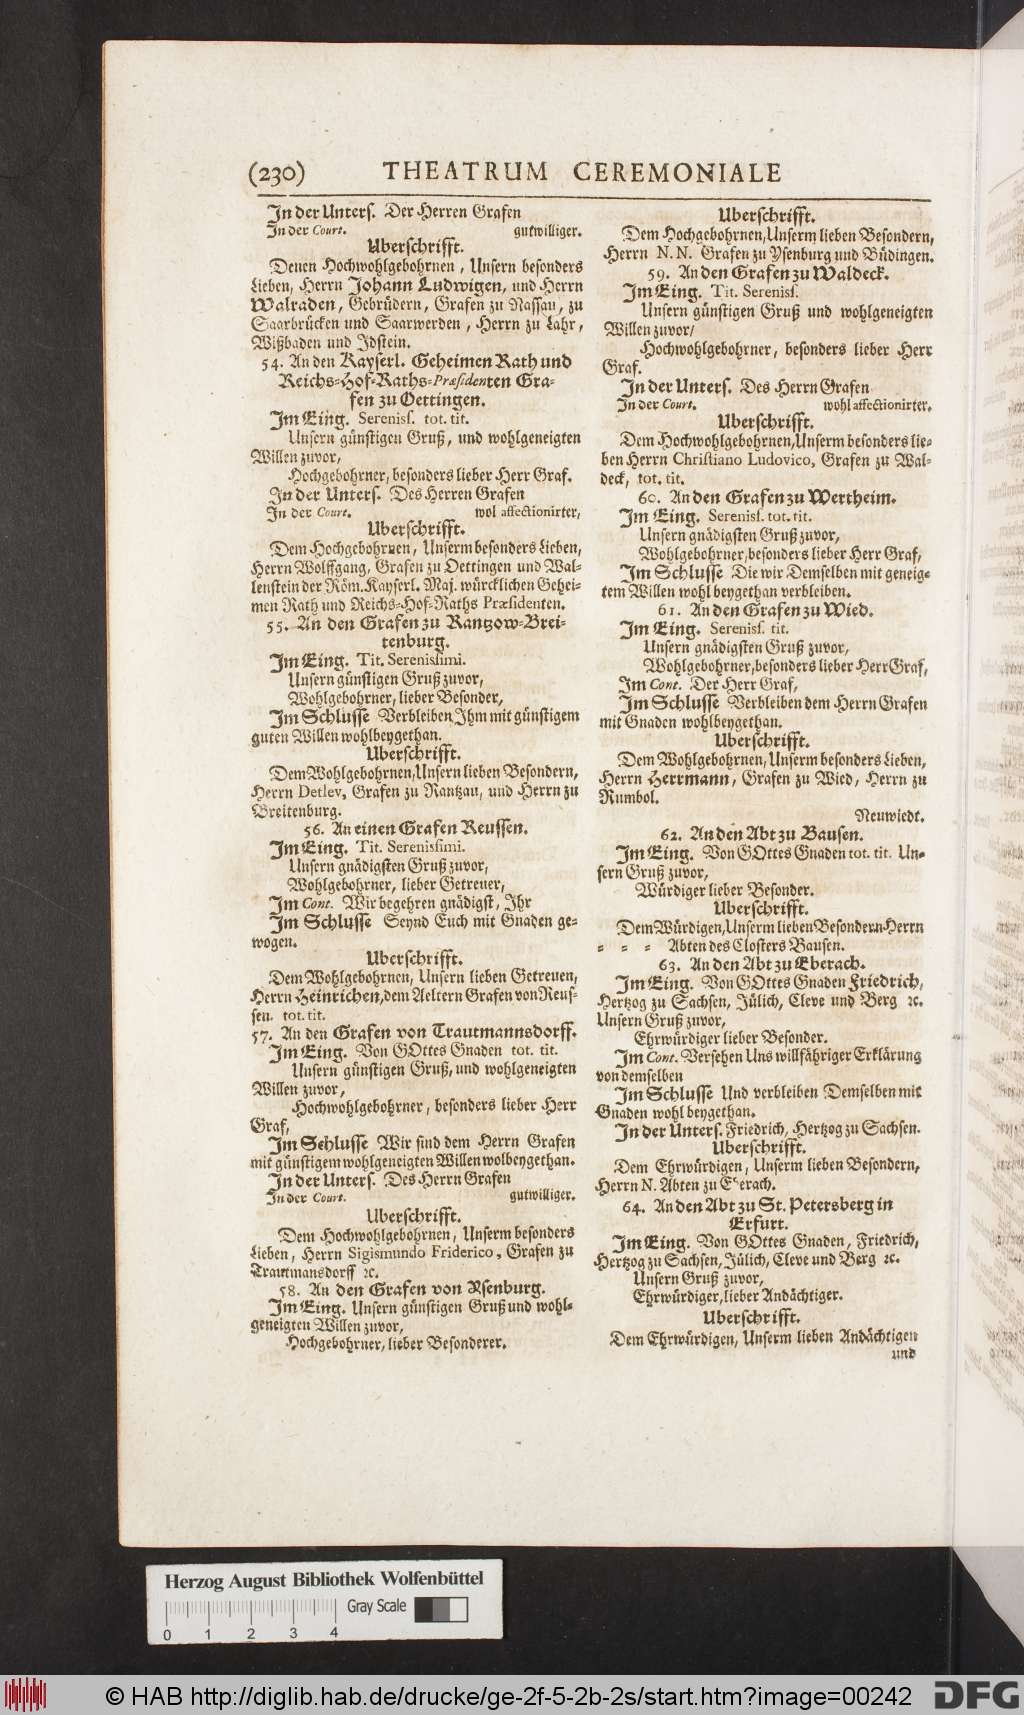 (230) THEATRUM CEREMONIALE
In der Unters. Der Herren Grafen
In der Court. gutwilliger.
Uberschrifft.
Denen Hochwohlgebohrnen, Unsern besonders
Lieben, Herrn Johann Ludwigen, und Herrn
Walraden, Gebrüdern, Grafen zu Nassau, zu
Saarbrücken und Saarwerden, Herrn zu Lahr,
Wißbaden und Idstein.
54. An den Kayserl. Geheimen Rath und
Reichs-Hof-Raths-Præsidenten Gra-
fen zu Oettingen.
Im Eing. Sereniss. tot. tit.
Unsern günstigen Gruß, und wohlgeneigten
Willen zuvor,
Hochgebohrner, besonders lieber Herr Graf.
In der Unters. Des Herren Grafen
In der Court. wol affectionirter,
Uberschrifft.
Dem Hochgebohrnen, Unserm besonders Lieben,
Herrn Wolffgang, Grafen zu Oettingen und Wal-
lenstein der Röm. Kayserl. Maj. würcklichen Gehei-
men Rath und Reichs-Hof-Raths Præsidenten.
55. An den Grafen zu Rantzow-Brei-
tenburg.
Im Eing. Tit. Serenissimi.
Unsern günstigen Gruß zuvor,
Wohlgebohrner, lieber Besonder,
Im Schlusse Verbleiben Ihm mit günstigem
guten Willen wohlbeygethan.
Uberschrifft.
Dem Wohlgebohrnen, Unsern lieben Besondern,
Herrn Detlev, Grafen zu Rantzau, und Herrn zu
Breitenburg.
56. An einen Grafen Reussen.
Im Eing. Tit. Serenissimi.
Unsern gnädigsten Gruß zuvor,
Wohlgebohrner, lieber Getreuer,
Im Cont. Wir begehren gnädigst, Ihr
Im Schlusse Seynd Euch mit Gnaden ge-
wogen.
Uberschrifft.
Dem Wohlgebohrnen, Unsern lieben Getreuen,
Herrn Heinrichen, dem Aeltern Grafen von Reus-
sen. tot. tit.
57. An den Grafen von Trautmannsdorff.
Im Eing. Von GOttes Gnaden tot. tit.
Unsern günstigen Gruß, und wohlgeneigten
Willen zuvor,
Hochwohlgebohrner, besonders lieber Herr
Graf,
Im Schlusse Wir sind dem Herrn Grafen
mit günstigem wohlgeneigten Willen wolbeygethan.
In der Unters. Des Herrn Grafen
In der Court. gutwilliger.
Uberschrifft.
Dem Hochwohlgebohrnen, Unserm besonders
Lieben, Herrn Sigismundo Friderico, Grafen zu
Trautmansdorff ꝛc.
58. An den Grafen von Ysenburg.
Im Eing. Unsern günstigen Gruß und wohl-
geneigten Willen zuvor,
Hochgebohrner, lieber Besonderer.
Uberschrifft.
Dem Hochgebohrnen, Unserm lieben Besondern,
Herrn N. N. Grafen zu Ysenburg und Büdingen.
59. An den Grafen zu Waldeck.
Im Eing. Tit. Sereniss.
Unsern günstigen Gruß und wohlgeneigten
Willen zuvor/
Hochwohlgebohrner, besonders lieber Herr
Graf.
In der Unters. Des Herrn Grafen
In der Court. wohl affectionirter.
Uberschrifft.
Dem Hochwohlgebohrnen, Unserm besonders lie-
ben Herrn Christiano Ludovico, Grafen zu Wal-
deck, tot. tit.
60. An den Grafen zu Wertheim.
Im Eing. Sereniss. tot. tit.
Unsern gnädigsten Gruß zuvor,
Wohlgebohrner, besonders lieber Herr Graf,
Im Schlusse Die wir Demselben mit geneig-
tem Willen wohl beygethan verbleiben.
61. An den Grafen zu Wied.
Im Eing. Sereniss. tit.
Unsern gnädigsten Gruß zuvor,
Wohlgebohrner, besonders lieber Herr Graf,
Im Cont. Der Herr Graf,
Im Schlusse Verbleiben dem Herrn Grafen
mit Gnaden wohlbeygethan.
Uberschrifft.
Dem Wohlgebohrnen, Unserm besonders Lieben,
Herrn Herrmann, Grafen zu Wied, Herrn zu
Rumbol.
Neuwiedt.
62. An den Abt zu Bausen.
Im Eing. Von GOttes Gnaden tot. tit. Un-
sern Gruß zuvor,
Würdiger lieber Besonder.
Uberschrifft.
Dem Würdigen, Unserm lieben Besondern Herrn
- - - Abten des Closters Bausen.
63. An den Abt zu Eberach.
Im Eing. Von GOttes Gnaden Friedrich,
Hertzog zu Sachsen, Jülich, Cleve und Berg ꝛc.
Unsern Gruß zuvor,
Ehrwürdiger lieber Besonder.
Im Cont. Versehen Uns willfähriger Erklärung
von demselben
Im Schlusse Und verbleiben Demselben mit
Gnaden wohl beygethan.
In der Unters. Friedrich, Hertzog zu Sachsen.
Uberschrifft.
Dem Ehrwürdigen, Unserm lieben Besondern,
Herrn N. Abten zu Eberach.
64. An den Abt zu St. Petersberg in
Erfurt.
Im Eing. Von GOttes Gnaden, Friedrich,
Hertzog zu Sachsen, Jülich, Cleve und Berg ꝛc.
Unsern Gruß zuvor,
Ehrwürdiger, lieber Andächtiger.
Uberschrifft.
Dem Ehrwürdigen, Unserm lieben Andächtigen
und
Herzog August Bibliothek Wolfenbüttel
Gray Scale
0 1 2 3 4
© HAB http://diglib.hab.de/drucke/ge-2f-5-2b-2s/start.htm?image=00242 DFG